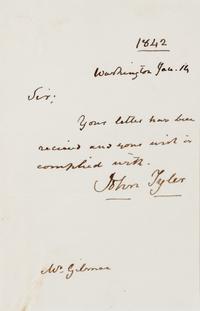 1842
Washington Jan. 14
Sir;
Your letter has been
received and your wish is
complied with.
John Tyler
Mr Gilman